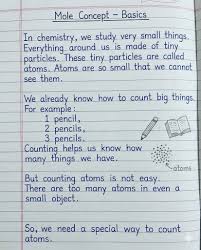 Mole Concept – Basics
In chemistry, we study very small things.
Everything around us is made of tiny
particles. These tiny particles are called
atoms. Atoms are so small that we cannot
see them.
We already know how to count big things.
For example:
1 pencil,
2 pencils,
3 pencils.
Counting helps us know how
many things we have.
atoms
But counting atoms is not easy.
There are too many atoms in even a
small object.
So, we need a special way to count
atoms.